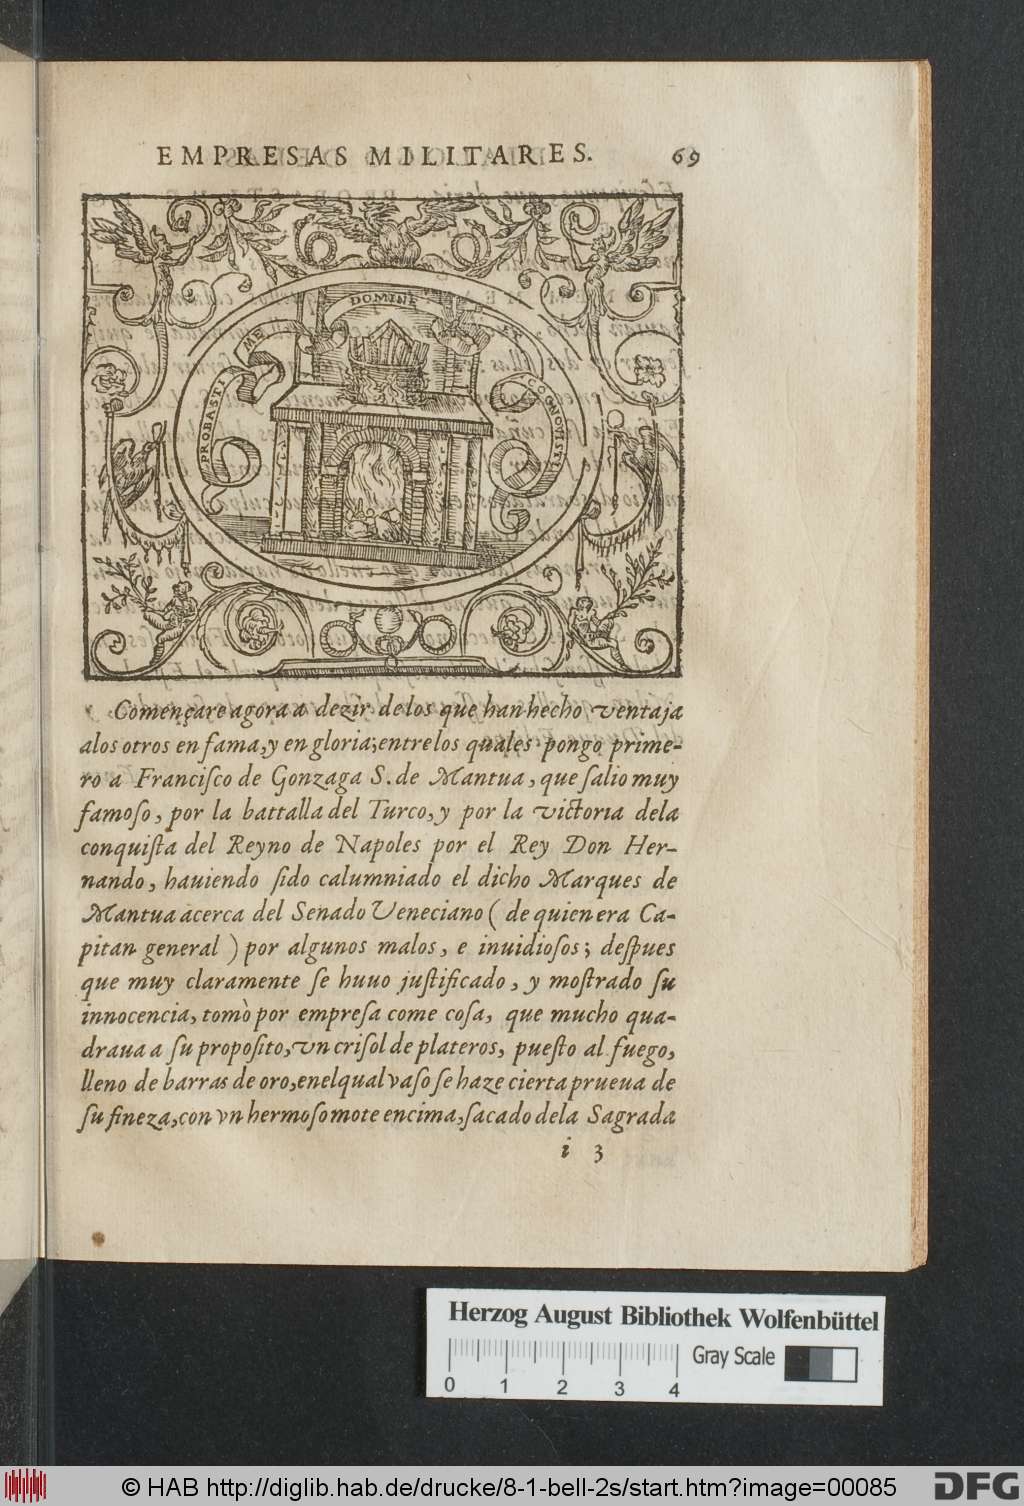 EMPRESAS MILITARES. 69
PROBASTI ME DOMINE ET COGNOVISTI
Començare agora a dezir de los que han hecho ventaja
alos otros en fama, y en gloria; entre los quales pongo prime-
ro a Franciſco de Gonzaga S. de Mantua, que ſalio muy
famoſo, por la battalla del Turco, y por la victoria dela
conquiſta del Reyno de Napoles por el Rey Don Her-
nando, hauiendo ſido calumniado el dicho Marques de
Mantua acerca del Senado Veneciano ( de quien era Ca-
pitan general ) por algunos malos, e inuidioſos; deſpues
que muy claramente ſe huuo juſtificado, y moſtrado ſu
innocencia, tomò por empreſa come coſa, que mucho qua-
draua a ſu propoſito, vn criſol de plateros, pueſto al fuego,
lleno de barras de oro, enel qual vaſo ſe haze cierta prueua de
ſu fineza, con vn hermoſo mote encima, ſacado dela Sagrada
i 3
Herzog August Bibliothek Wolfenbüttel
Gray Scale
0 1 2 3 4
© HAB http://diglib.hab.de/drucke/8-1-bell-2s/start.htm?image=00085
DFG